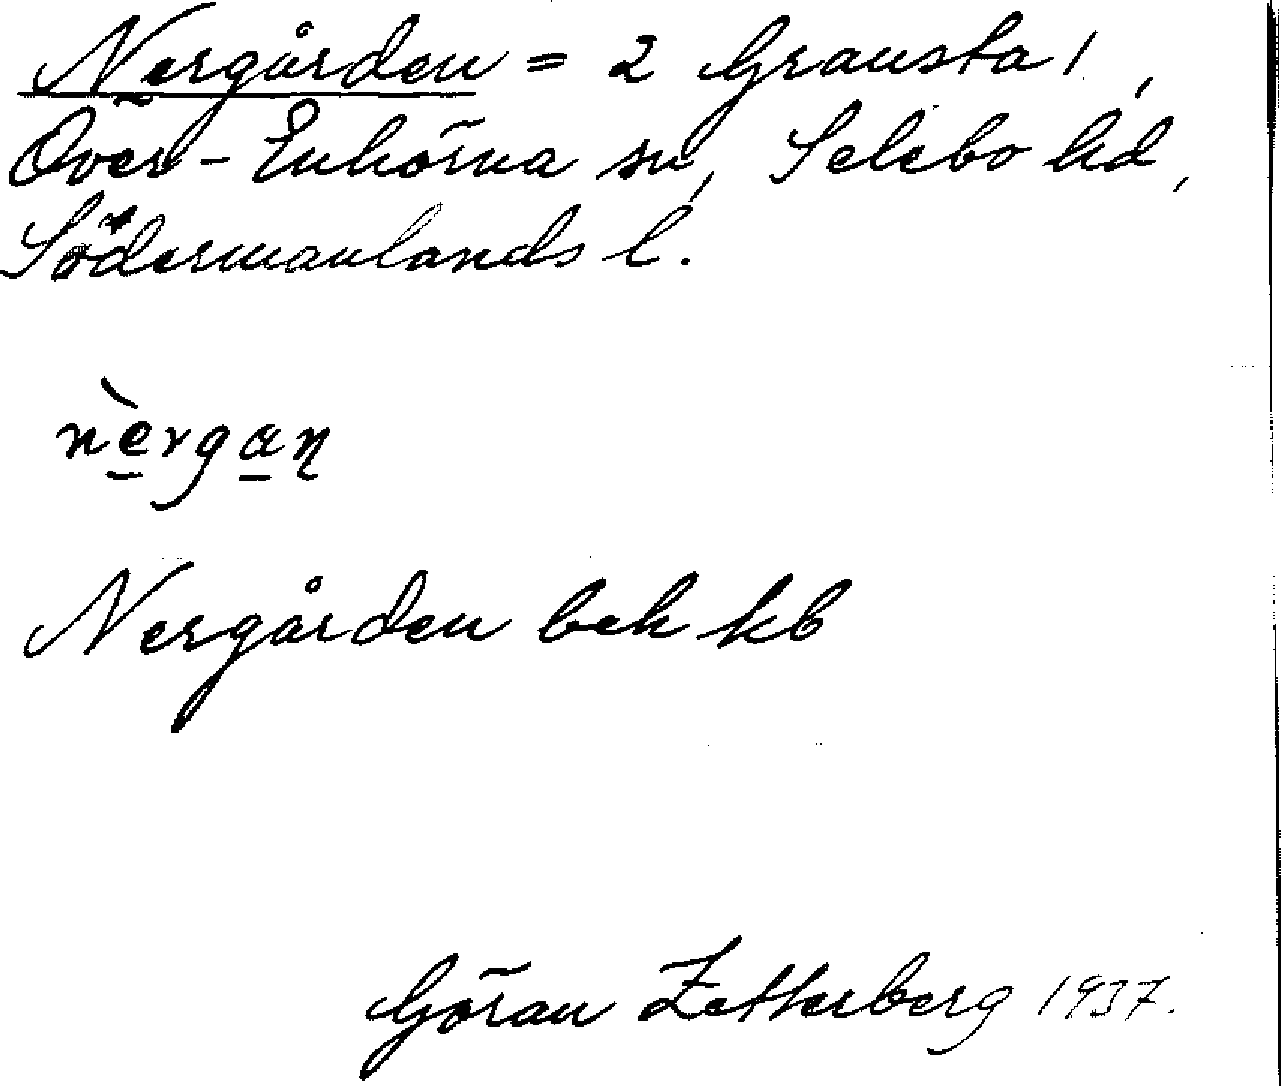 Nergården = 2 Gransta 1,
Över-Enhörna sn, Selebo hd,
Södermanlands l.
nèrgaṇ
Nergården bek kb
Göran Zetterberg 1937.